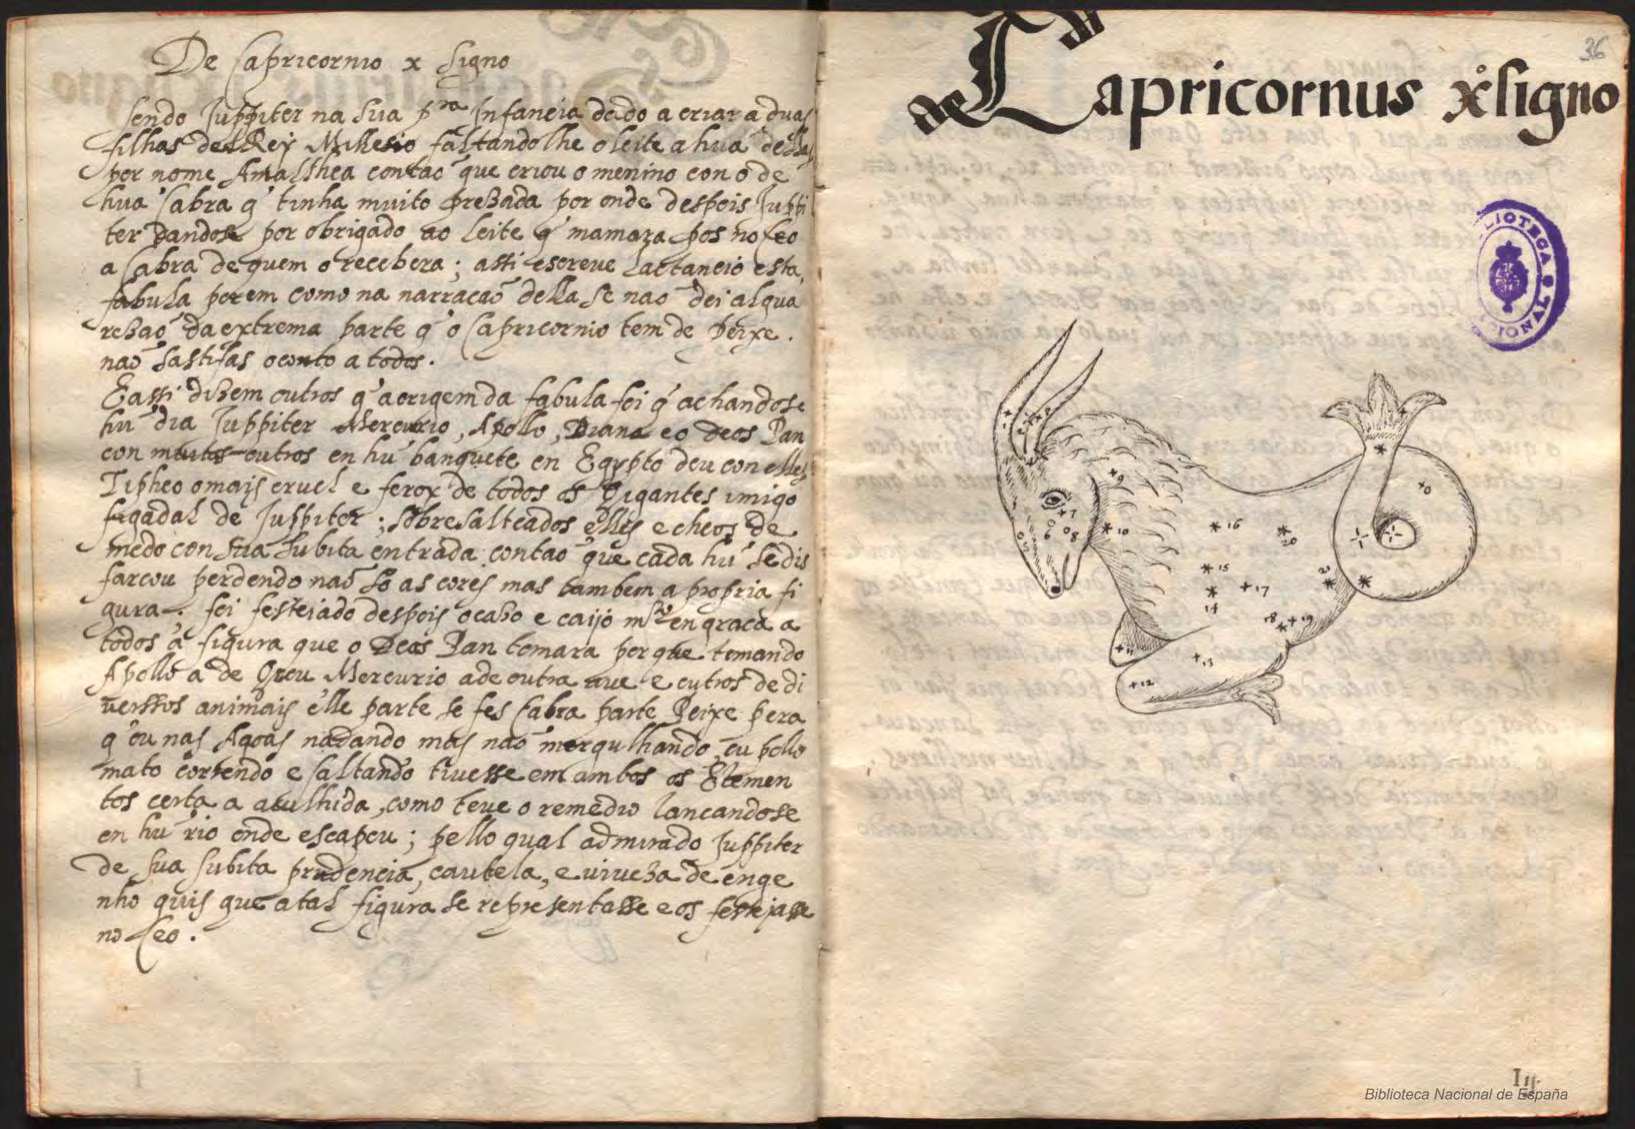 De Capricornio x signo
Sendo Juppiter na sua pra Infançia dado a criar a duas
filhas del Rey Milleseo faltandolhe o leite a hua dellas
por nome Amalthea contaõ que criou o menino con o de
hua Cabra q̃ tinha muito prezada por onde despois Juppi
ter dandose por obrigado ao leite q̃ mamara pos no ceo
a Cabra de quem o recebera; assi escreve Lactancio esta
fabula porem como na narraçaõ della se naõ dei algua
rezaõ da extrema parte q̃ o Capricornio tem de Peixe.
naõ sastifas o conto a todos.
E assi dizem outros q̃ a origem da fabula foi q̃ achandose
hũ dia Juppiter Mercurio, Apollo, Diana e o deos Pan
con muitos outros en hũ banquete en Egypto deu con elles
Tipheo o mais cruel e ferox de todos os Gigantes imigo
figadal de Juppiter; sobresalteados elles e cheos de
medo con sua subita entrada contaõ que cada hũ se dis
farcou perdendo naõ so as cores mas tambem a propria fi
gura. foi festejado despois o caso e caijo mto en graça a
todos a figura que o Deos Pan tomara porque tomando
Apollo a de Grou Mercurio a de outra ave e outros de di
uerssos animais elle parte se fes Cabra parte Peixe pera
q̃ ou nas Agoas nadando mas naõ mergulhando, ou pello
mato correndo e saltando tivesse em ambos os Elemen
tos certa a acolhida, como teve o remedio lancandose
en hũ rio onde escapou; pello qual admirado Juppiter
de sua subita prudencia, cautela, e viueza de enge
nho quis que a tal figura se representasse e os festejasse
no Ceo.
36
de Capricornus xº signo
BIBLIOTECA
7
6
8
9
10
11
12
13
14
15
16
17
18
19
20
Biblioteca Nacional de España